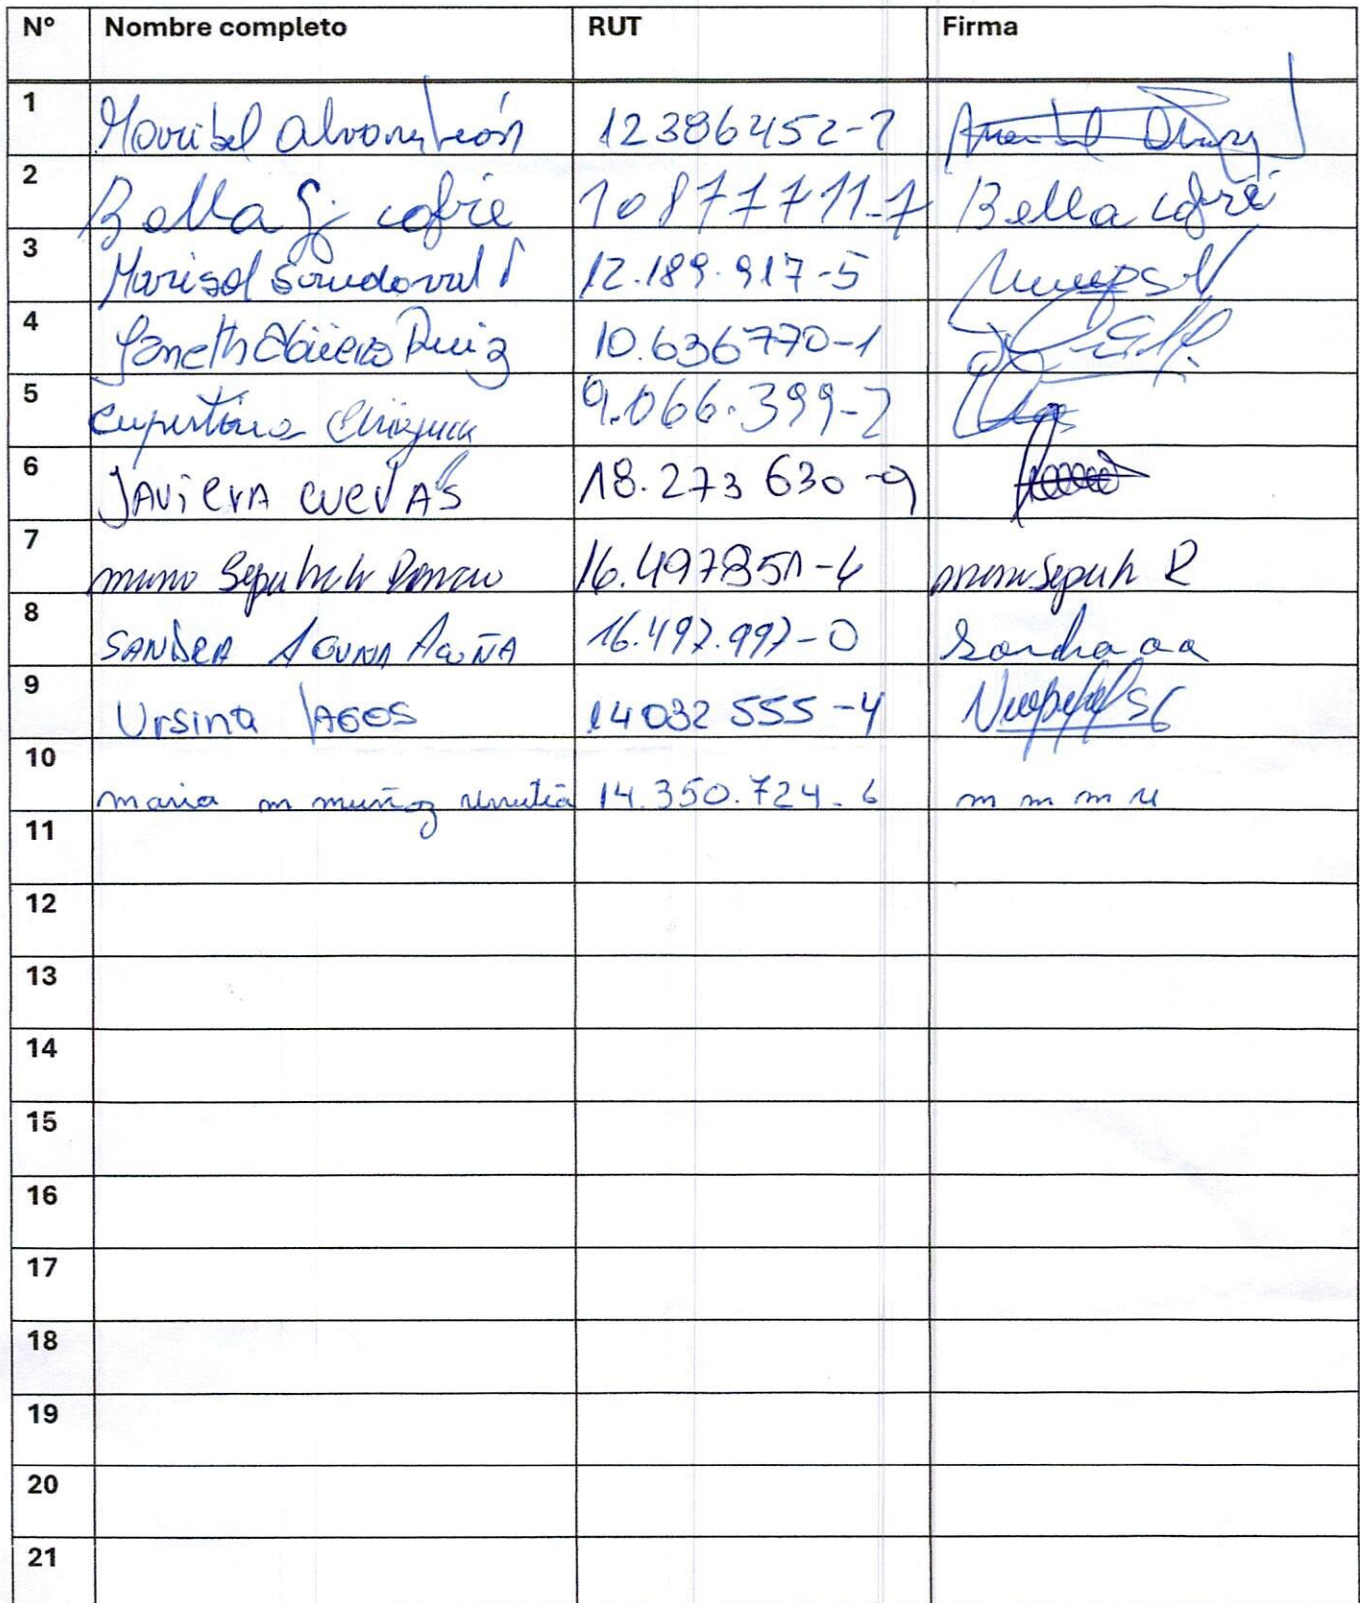 Nº Nombre completo RUT Firma
1 Maribel 12386452-7
2 Bella G. cofré 10877711-7 Bella cofré
3 Marisol Sandoval 12.189.917-5
4 Janeth Ruiz 10.636770-1
5 9.066.399-2
6 JAViERA CUEVAS 18.273 630-9
7 16.497851-4
8 SANDRA ACUÑA 16.497.997-0 Sandra a a
9 Ursina LAGOS 14032 555-4
10 maria m muñoz urrutia 14.350.724-6 m m m u
11
12
13
14
15
16
17
18
19
20
21